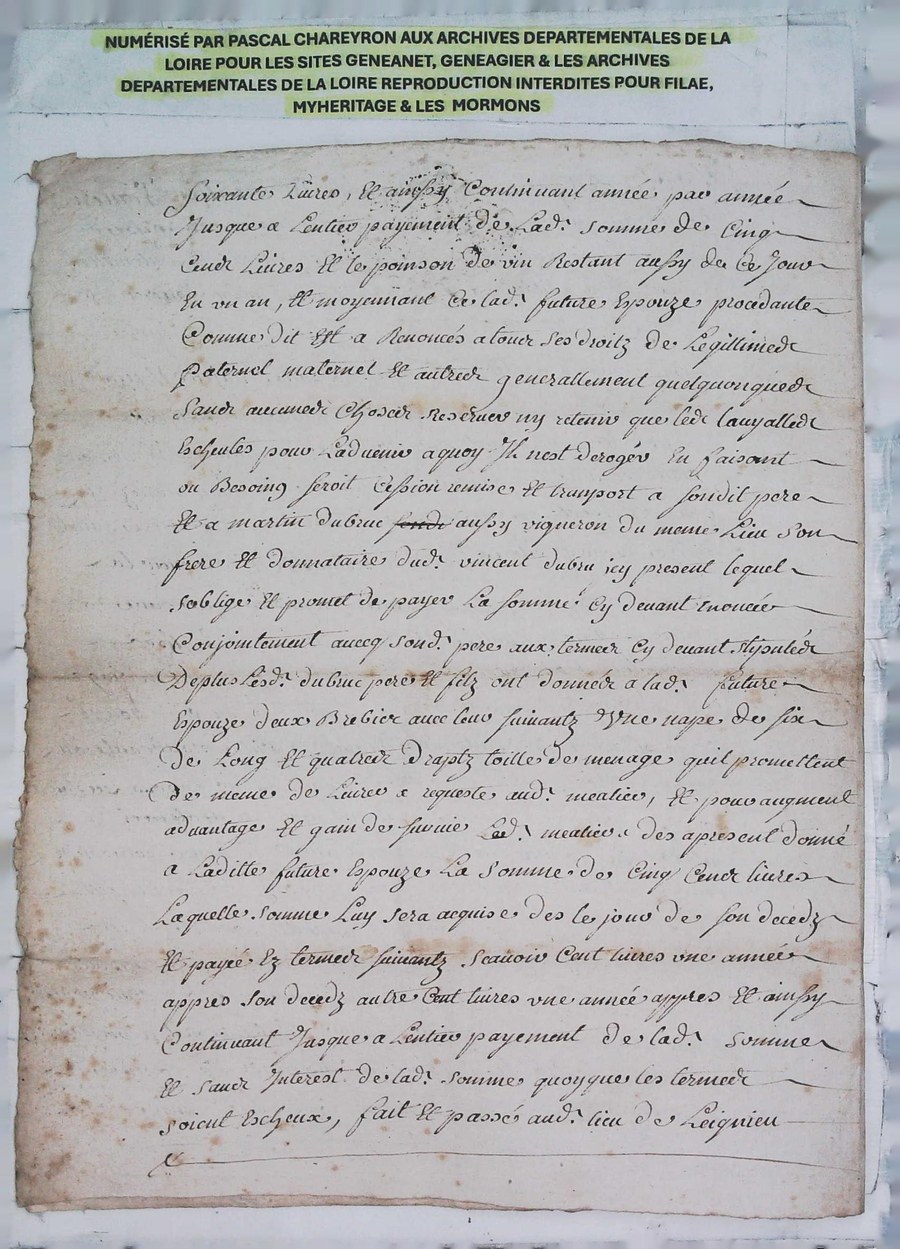 NUMÉRISÉ PAR PASCAL CHAREYRON AUX ARCHIVES DEPARTEMENTALES DE LA
LOIRE POUR LES SITES GENEANET, GENEAGIER & LES ARCHIVES
DEPARTEMENTALES DE LA LOIRE REPRODUCTION INTERDITES POUR FILAE,
MYHERITAGE & LES MORMONS
soixante Livres, Et ainssy Continuant année par année
Jusque a Lentier payement de Lad. somme de Cinq
Cents Livres Et le poinson de vin Restant aussy de Ce Jour
En un an, Et moyennant Ce lad. future Epouze procedante
Comme dit Est a Renoncés a tous ses droitz de Legittimes
paternel maternel Et autres generallement quelquonques
sans aucunes Choses reserver ny retenir que les
Escheutes pour Ladvenir a quoy Il nest derogér En faisant
ou Besoing seroit Cession remise Et transport a sondit pere
Et a martin dubruc aussy vigneron du meme Lieu son
frere Et donnataire dud. vincent dubru icy present lequel
soblige Et promet de payer La somme Cy devant enoncée
Conjointement avecq sond. pere aux termes Cy devant stipulés
De plus Lesd. dubruc pere Et filz ont donnés a lad. future
Epouze deux Brebies avec leur suivantz Une nape de six
De Long Et quatres draptz toille de menage quil promettent
De meme de Livrer a requeste aud. meatier, Et pour augment
advantage Et gain de survie Led. meatier des apresent donné
a Laditte future Epouze La somme de Cinq Cents livres
Laquelle somme Luy sera acquise des le jour de son decedz
Et payée Ez termes suivantz scavoir Cent livres une année
appres son decedz autre Cent livres une année appres Et ainssy
Continuant Jusque a Lentier payement de lad. somme
Et sans Interest de lad. somme quoyque les termes
soient Escheux, fait Et passé aud. lieu de Leignieu